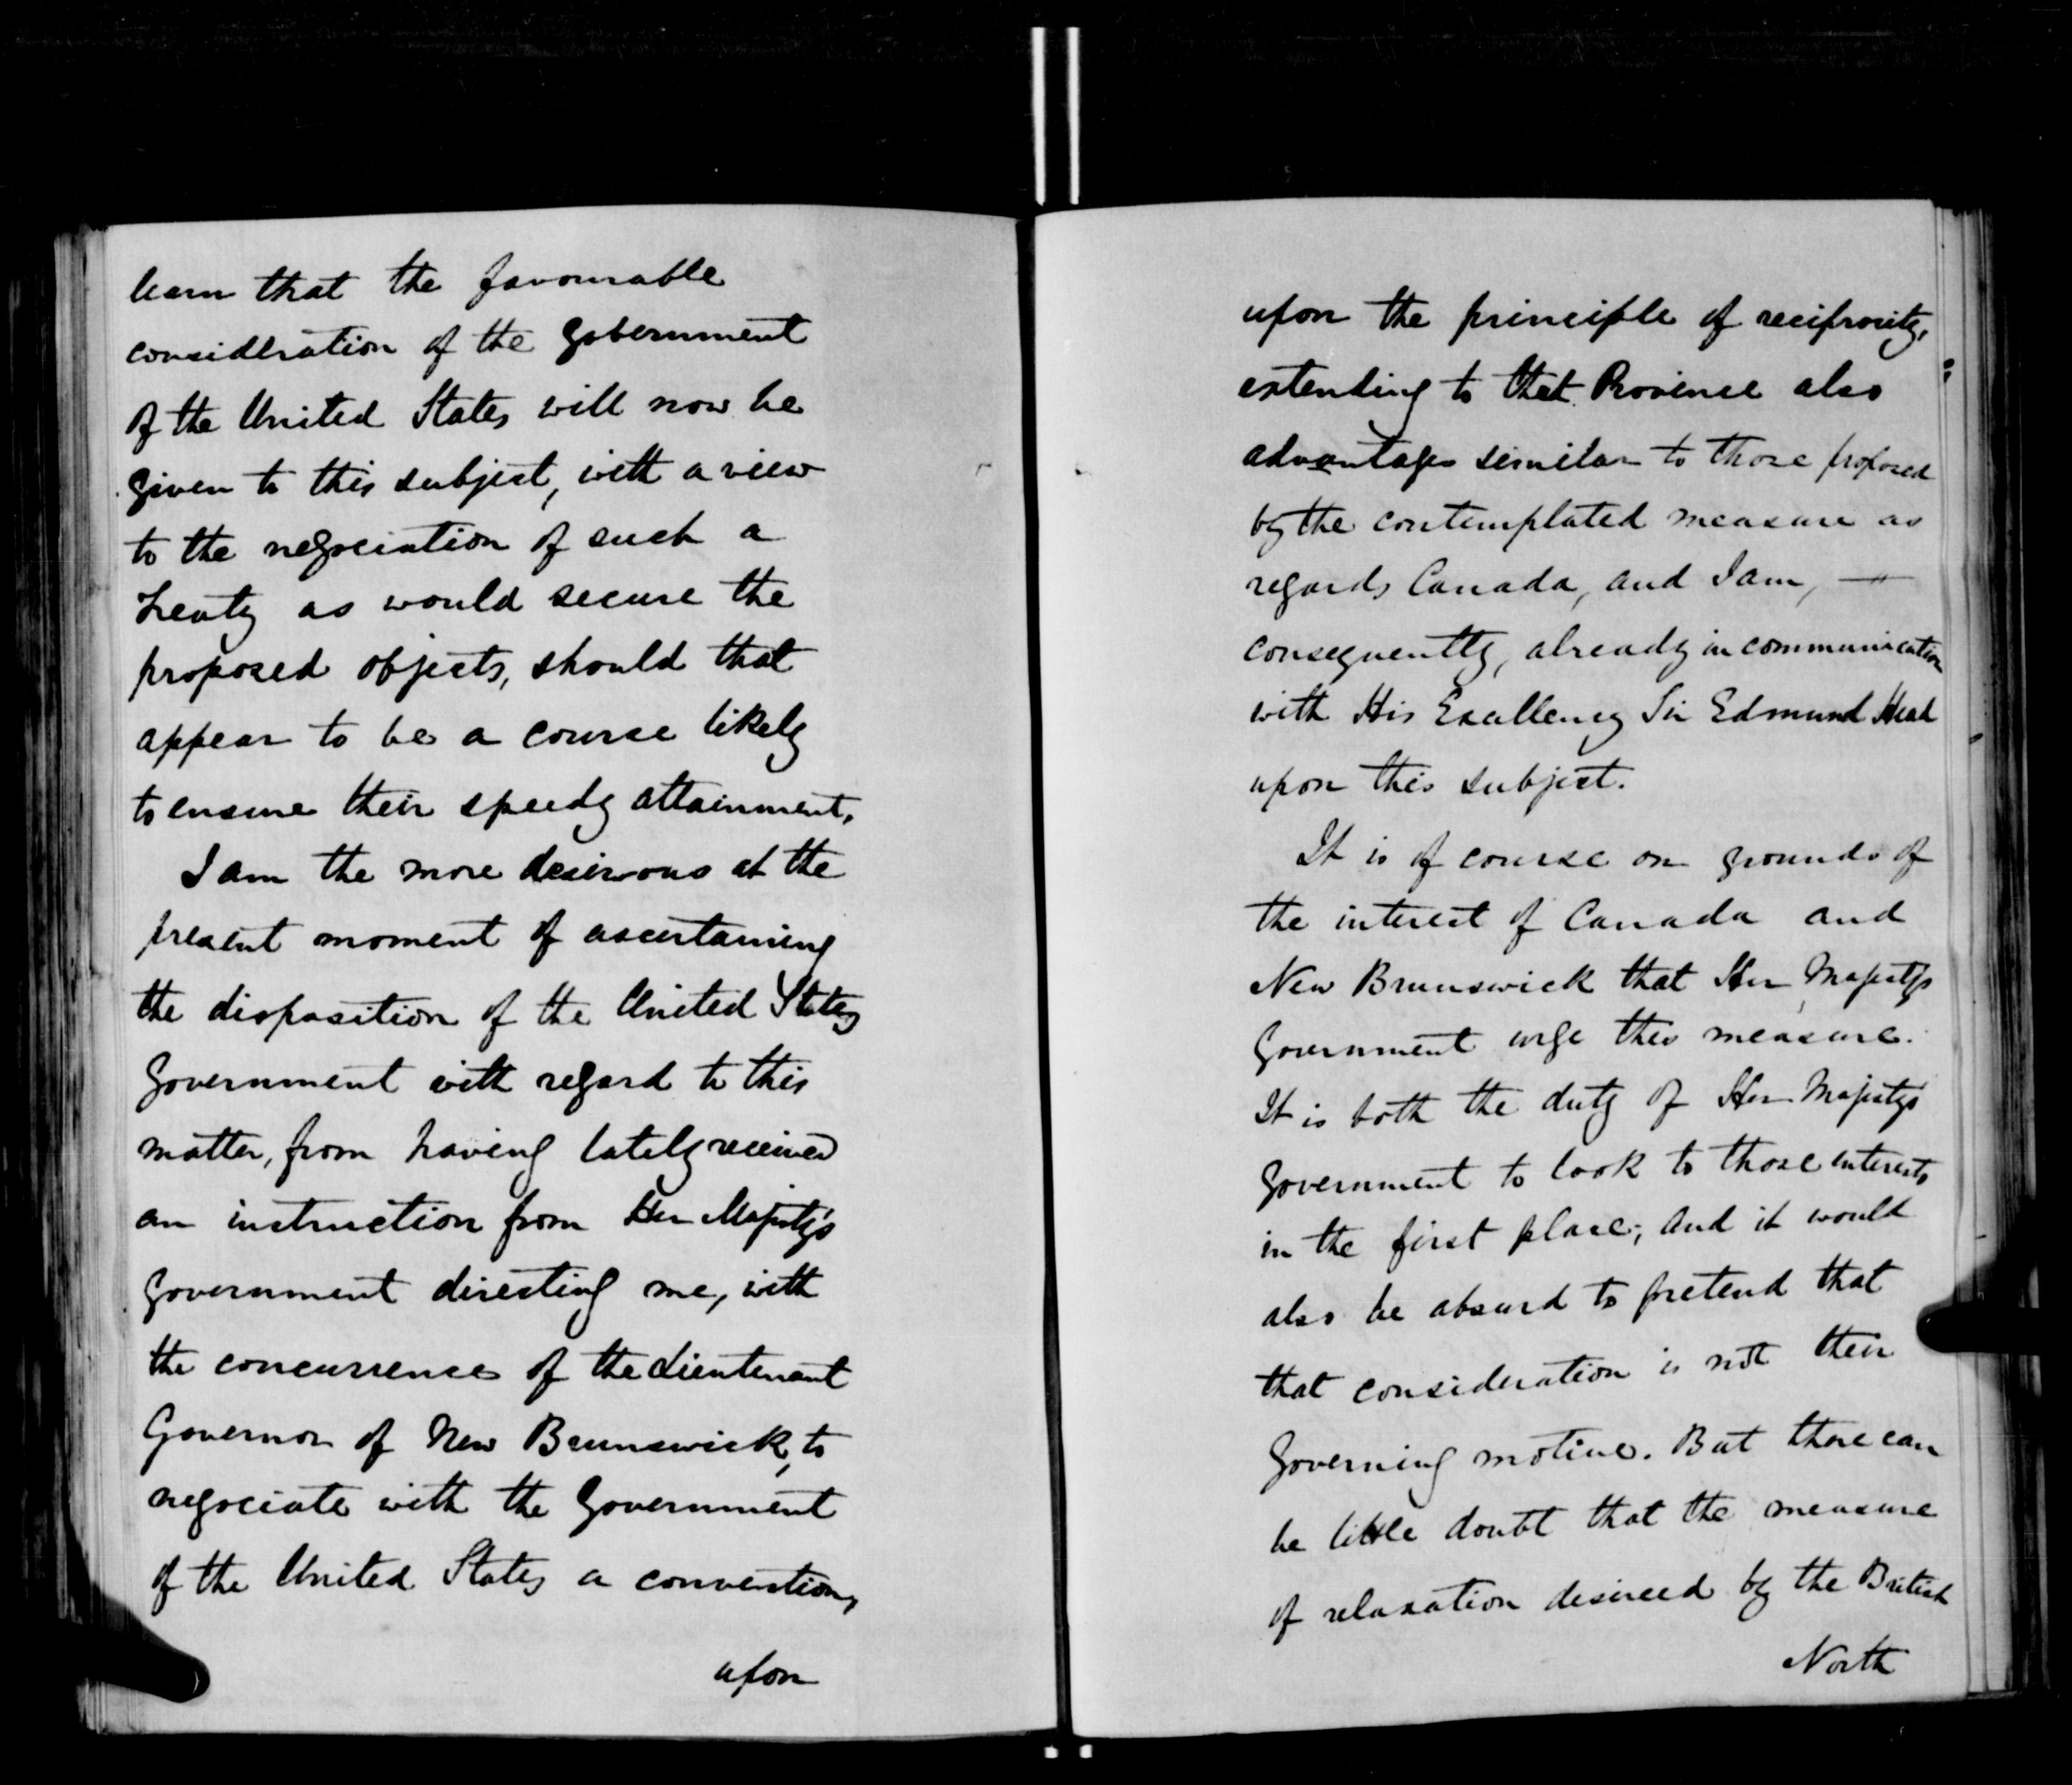 learn that the favourable
consideration of the Government
of the United States will now be
given to this subject, with a view
to the negociation of such a
treaty as would secure the
proposed objects, should that
appear to be a course likely
to ensure their speedy attainment.
I am the more desirous at the
present moment of ascertaining
the disposition of the United States
Government with regard to this
matter, from having lately received
an instruction from Her Majesty's
Government directing me, with
the concurrence of the Lieutenant
Governor of New Brunswick, to
negociate with the Government
of the United States a convention,
upon
upon the principle of reciprocity,
extending to that Province also
advantages similar to those proposed
by the contemplated measure as
regards Canada, and I am, —
consequently, already in communication
with His Excellency Sir Edmund Head
upon this subject.
It is of course on grounds of
the interest of Canada and
New Brunswick that Her Majesty's
Government urge this measure.
It is both the duty of Her Majesty's
Government to look to those interests
in the first place; and it would
also be absurd to pretend that
that consideration is not their
governing motive. But there can
be little doubt that the measure
of relaxation desired by the British
North